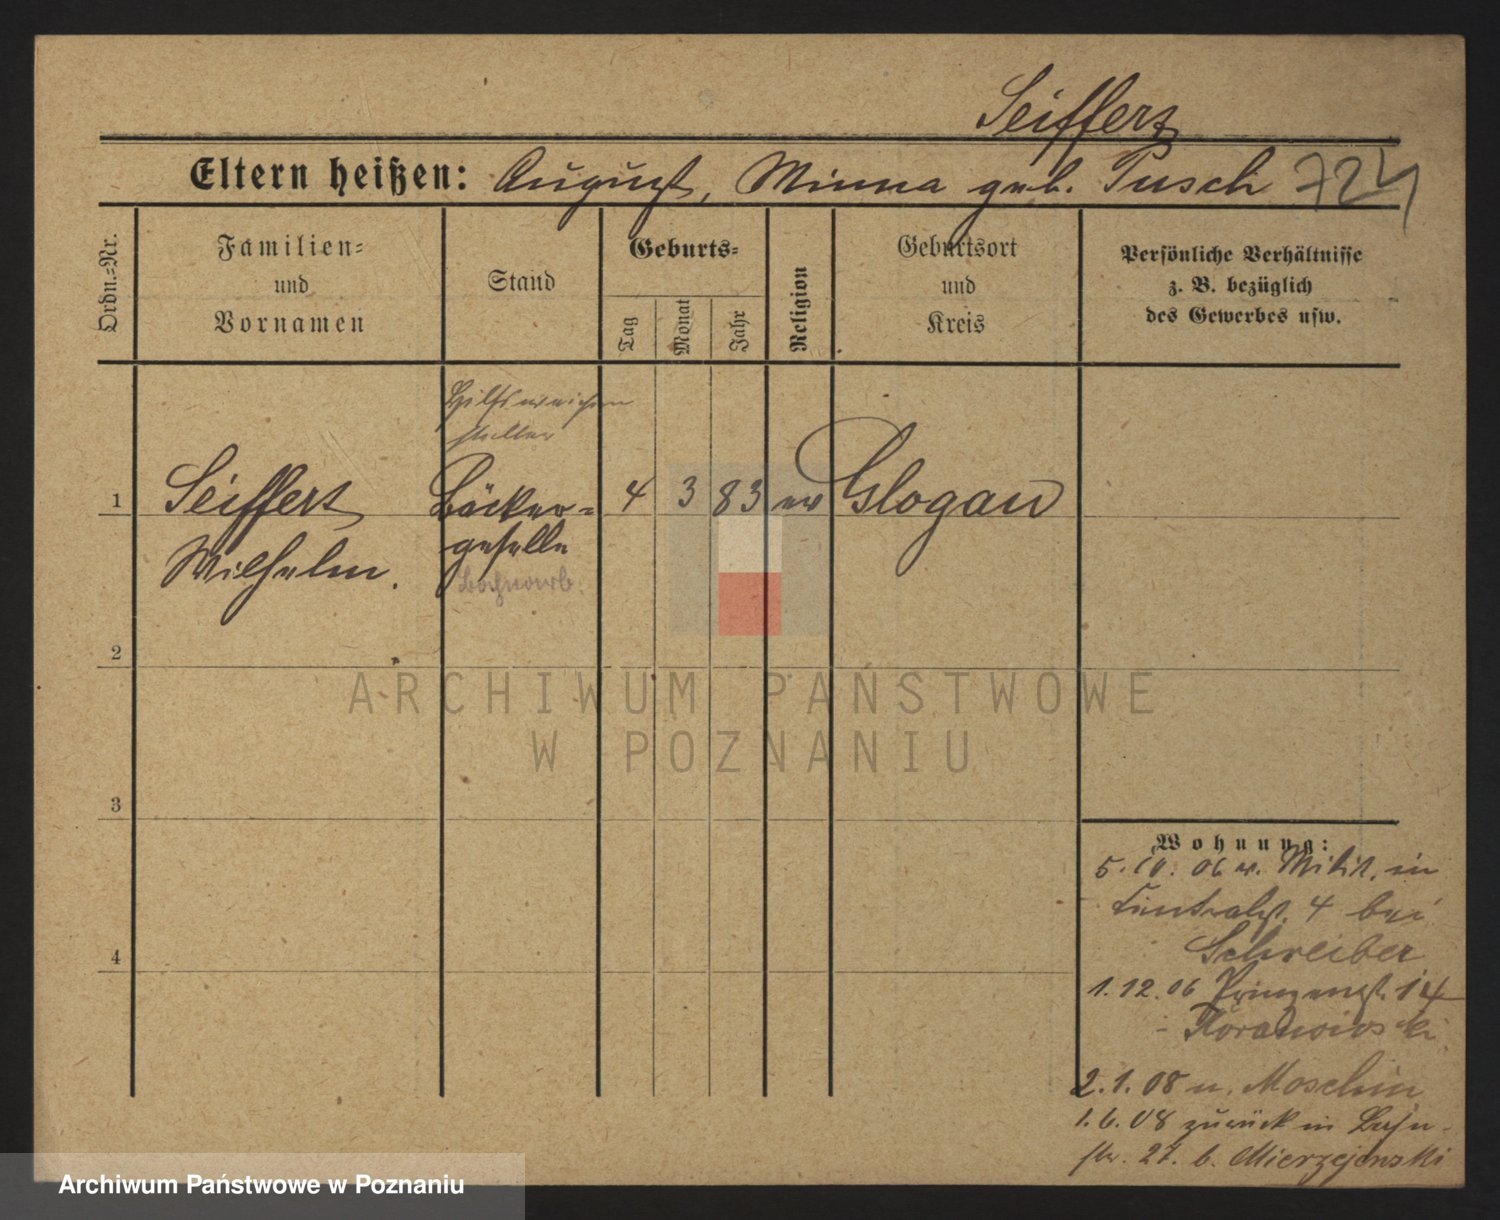 Seiffert
Eltern heißen: August, Minna geb. Pusch 724
Ordn.-Nr.
Familien-
und
Vornamen
Stand
Geburts-
Tag
Monat
Jahr
Religion
Geburtsort
und
Kreis
Persönliche Verhältnisse
z. B. bezüglich
des Gewerbes usw.
Hilfsweichen
steller
1 Seiffert Bäcker- 4 3 83 ev Glogau
Wilhelm. geselle
Bahnarb.
2
ARCHIWUM PAŃSTWOWE
W POZNANIU
3
Wohnung:
5. 10. 06 v. Milit. in
4 bei
Schreiber
4
1. 12. 06 Prinzenst. 14
2. 1. 08 n. Moschin
1. 6. 08 zurück in
str. 27. b. Mierzejewski
Archiwum Państwowe w Poznaniu